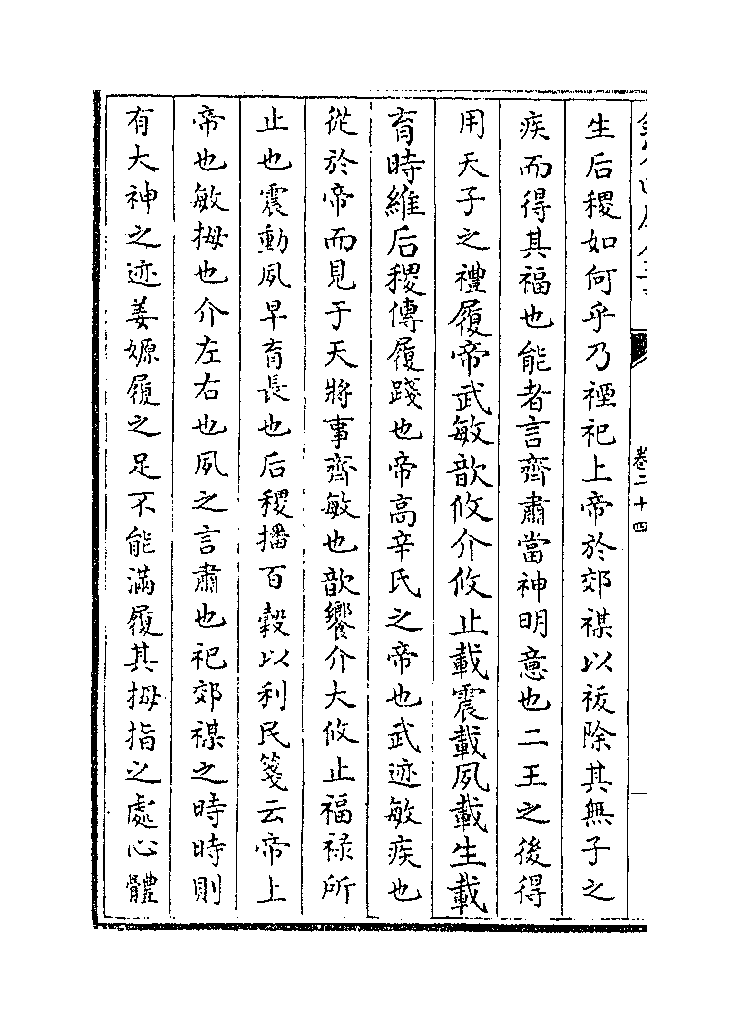 生后稷如何乎乃禋祀上帝於郊禖以祓除其無子之
疾而得其福也能者言齊肅當神明意也二王之後得
用天子之禮履帝武敏歆攸介攸止載震載夙載生載
育時維后稷傳履踐也帝高辛氏之帝也武迹敏疾也
從於帝而見于天將事齊敏也歆饗介大攸止福禄所
止也震動夙早育長也后稷播百穀以利民箋云帝上
帝也敏拇也介左右也夙之言肅也祀郊禖之時時則
有大神之迹姜嫄履之足不能滿履其拇指之處心體
卷二十四